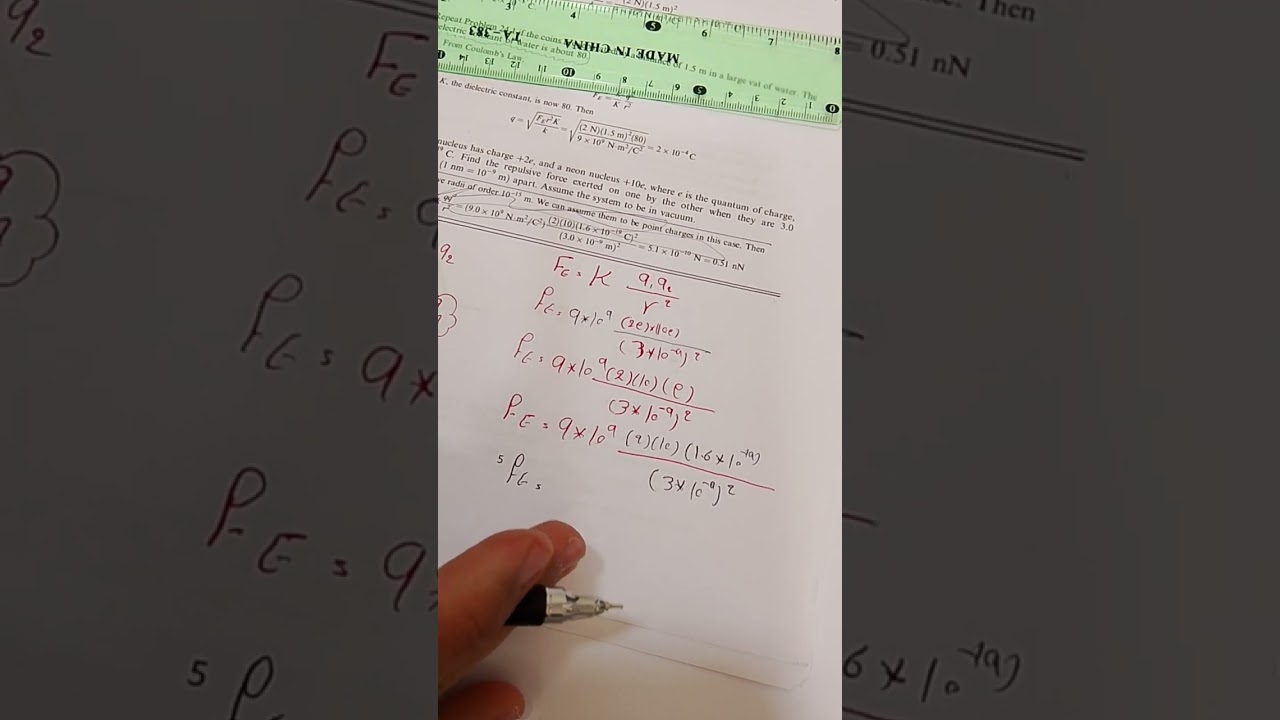 (2 N)(1.5 m)²
3 4 5 6 7 8
Repeat Problem 24.1 if the coins
of 1.5 m in a large vat of water. The
water is about 80.
TA-383
MADE IN CHINA
From Coulomb's Law,
14 13 12 11 10 9 8 7 6 5 4 3 2 1 0
K, the dielectric constant, is now 80. Then
q = √(F_E r² K / k) = √((2 N)(1.5 m)²(80) / 9 × 10⁹ N·m²/C²) = 2 × 10⁻⁴ C
nucleus has charge +2e, and a neon nucleus +10e, where e is the quantum of charge,
C. Find the repulsive force exerted on one by the other when they are 3.0
(1 nm = 10⁻⁹ m) apart. Assume the system to be in vacuum.
radii of order 10⁻¹⁵ m. We can assume them to be point charges in this case. Then
qq' / r² = (9.0 × 10⁹ N·m²/C²) (2)(10)(1.6 × 10⁻¹⁹ C)² / (3.0 × 10⁻⁹ m)² = 5.1 × 10⁻¹⁰ N = 0.51 nN
q₂
F_E = K q₁q₂ / r²
F_E = 9×10⁹ (2e)×(10e) / (3×10⁻⁹)²
F_E = 9×10⁹ (2)(10)(e) / (3×10⁻⁹)²
F_E = 9×10⁹ (2)(10)(1.6×10⁻¹⁹) / (3×10⁻⁹)²
5 F_E =